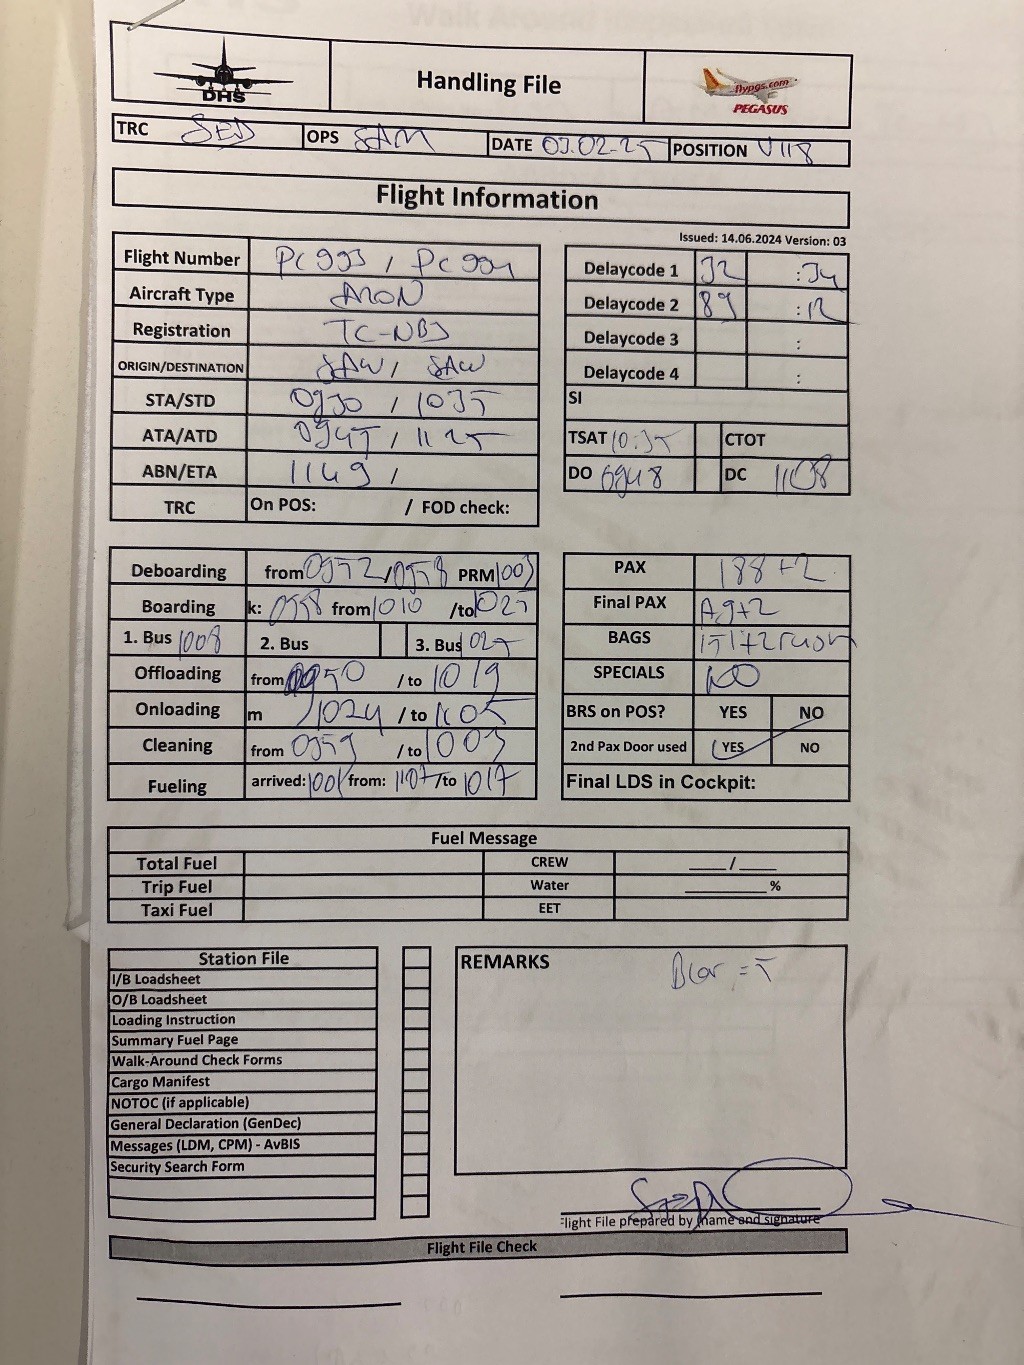 DHS
Handling File
flypgs.com
PEGASUS
TRC SED OPS SAM DATE 03.02.25 POSITION V118
Flight Information
Issued: 14.06.2024 Version: 03
Flight Number PC 993 / PC 994
Aircraft Type A20N
Registration TC-NBJ
ORIGIN/DESTINATION SAW / SAW
STA/STD 0930 / 1035
ATA/ATD 0945 / 1125
ABN/ETA 1149 /
TRC On POS: / FOD check:
Delaycode 1 32 : 34
Delaycode 2 89 :
Delaycode 3 :
Delaycode 4 :
SI
TSAT 10:35 CTOT
DO 0948 DC 1108
Deboarding from 0952 / 0958 PRM 1003
Boarding k: 0958 from 1010 /to 1025
1. Bus 1008 2. Bus 3. Bus 1025
Offloading from 0950 / to 1019
Onloading m 1024 / to 1105
Cleaning from 0959 / to 1003
Fueling arrived: 1001 from: /to 1017
PAX 188+2
Final PAX
BAGS
SPECIALS NO
BRS on POS? YES NO
2nd Pax Door used YES NO
Final LDS in Cockpit:
Fuel Message
Total Fuel CREW ____/____
Trip Fuel Water _________%
Taxi Fuel EET
Station File
I/B Loadsheet
O/B Loadsheet
Loading Instruction
Summary Fuel Page
Walk-Around Check Forms
Cargo Manifest
NOTOC (if applicable)
General Declaration (GenDec)
Messages (LDM, CPM) - AvBIS
Security Search Form
REMARKS
= 5
Flight File prepared by (name and signature
Flight File Check